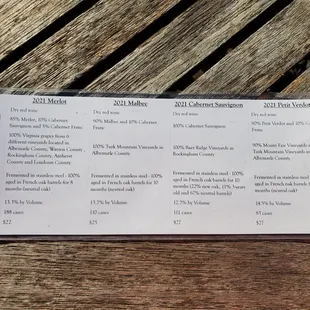 2021 Merlot
Dry red wine
85% Merlot, 10% Cabernet
Sauvignon and 5% Cabernet Franc
100% Virginia grapes from 6
different vineyards located in
Albemarle County, Warren County,
Rockingham County, Amherst
County and Loudoun County
Fermented in stainless steel - 100%
aged in French oak barrels for 8
months (neutral oak)
13.3% by Volume
288 cases
$22
2021 Malbec
Dry red wine
90% Malbec and 10% Cabernet
Franc
100% Turk Mountain Vineyards in
Albemarle County
Fermented in stainless steel - 100%
aged in French oak barrels for 10
months (neutral oak)
13.2% by Volume
$25
2021 Cabernet Sauvignon
Dry red wine
100% Cabernet Sauvignon
100% Bare Ridge Vineyards in
Rockingham County
Fermented in stainless steel - 100%
aged in French oak barrels for 10
months
old and 67% neutral oak)
12.7% by Volume
$27
2021 Petit Verdot
Dry red wine
90% Petit Verdot and 10%
90% Mount Fair Vineyards
Turk Mountain Vineyards in
Albemarle County
Fermented in stainless steel
aged in French oak barrels
months (neutral oak)
14.5% by Volume
$27